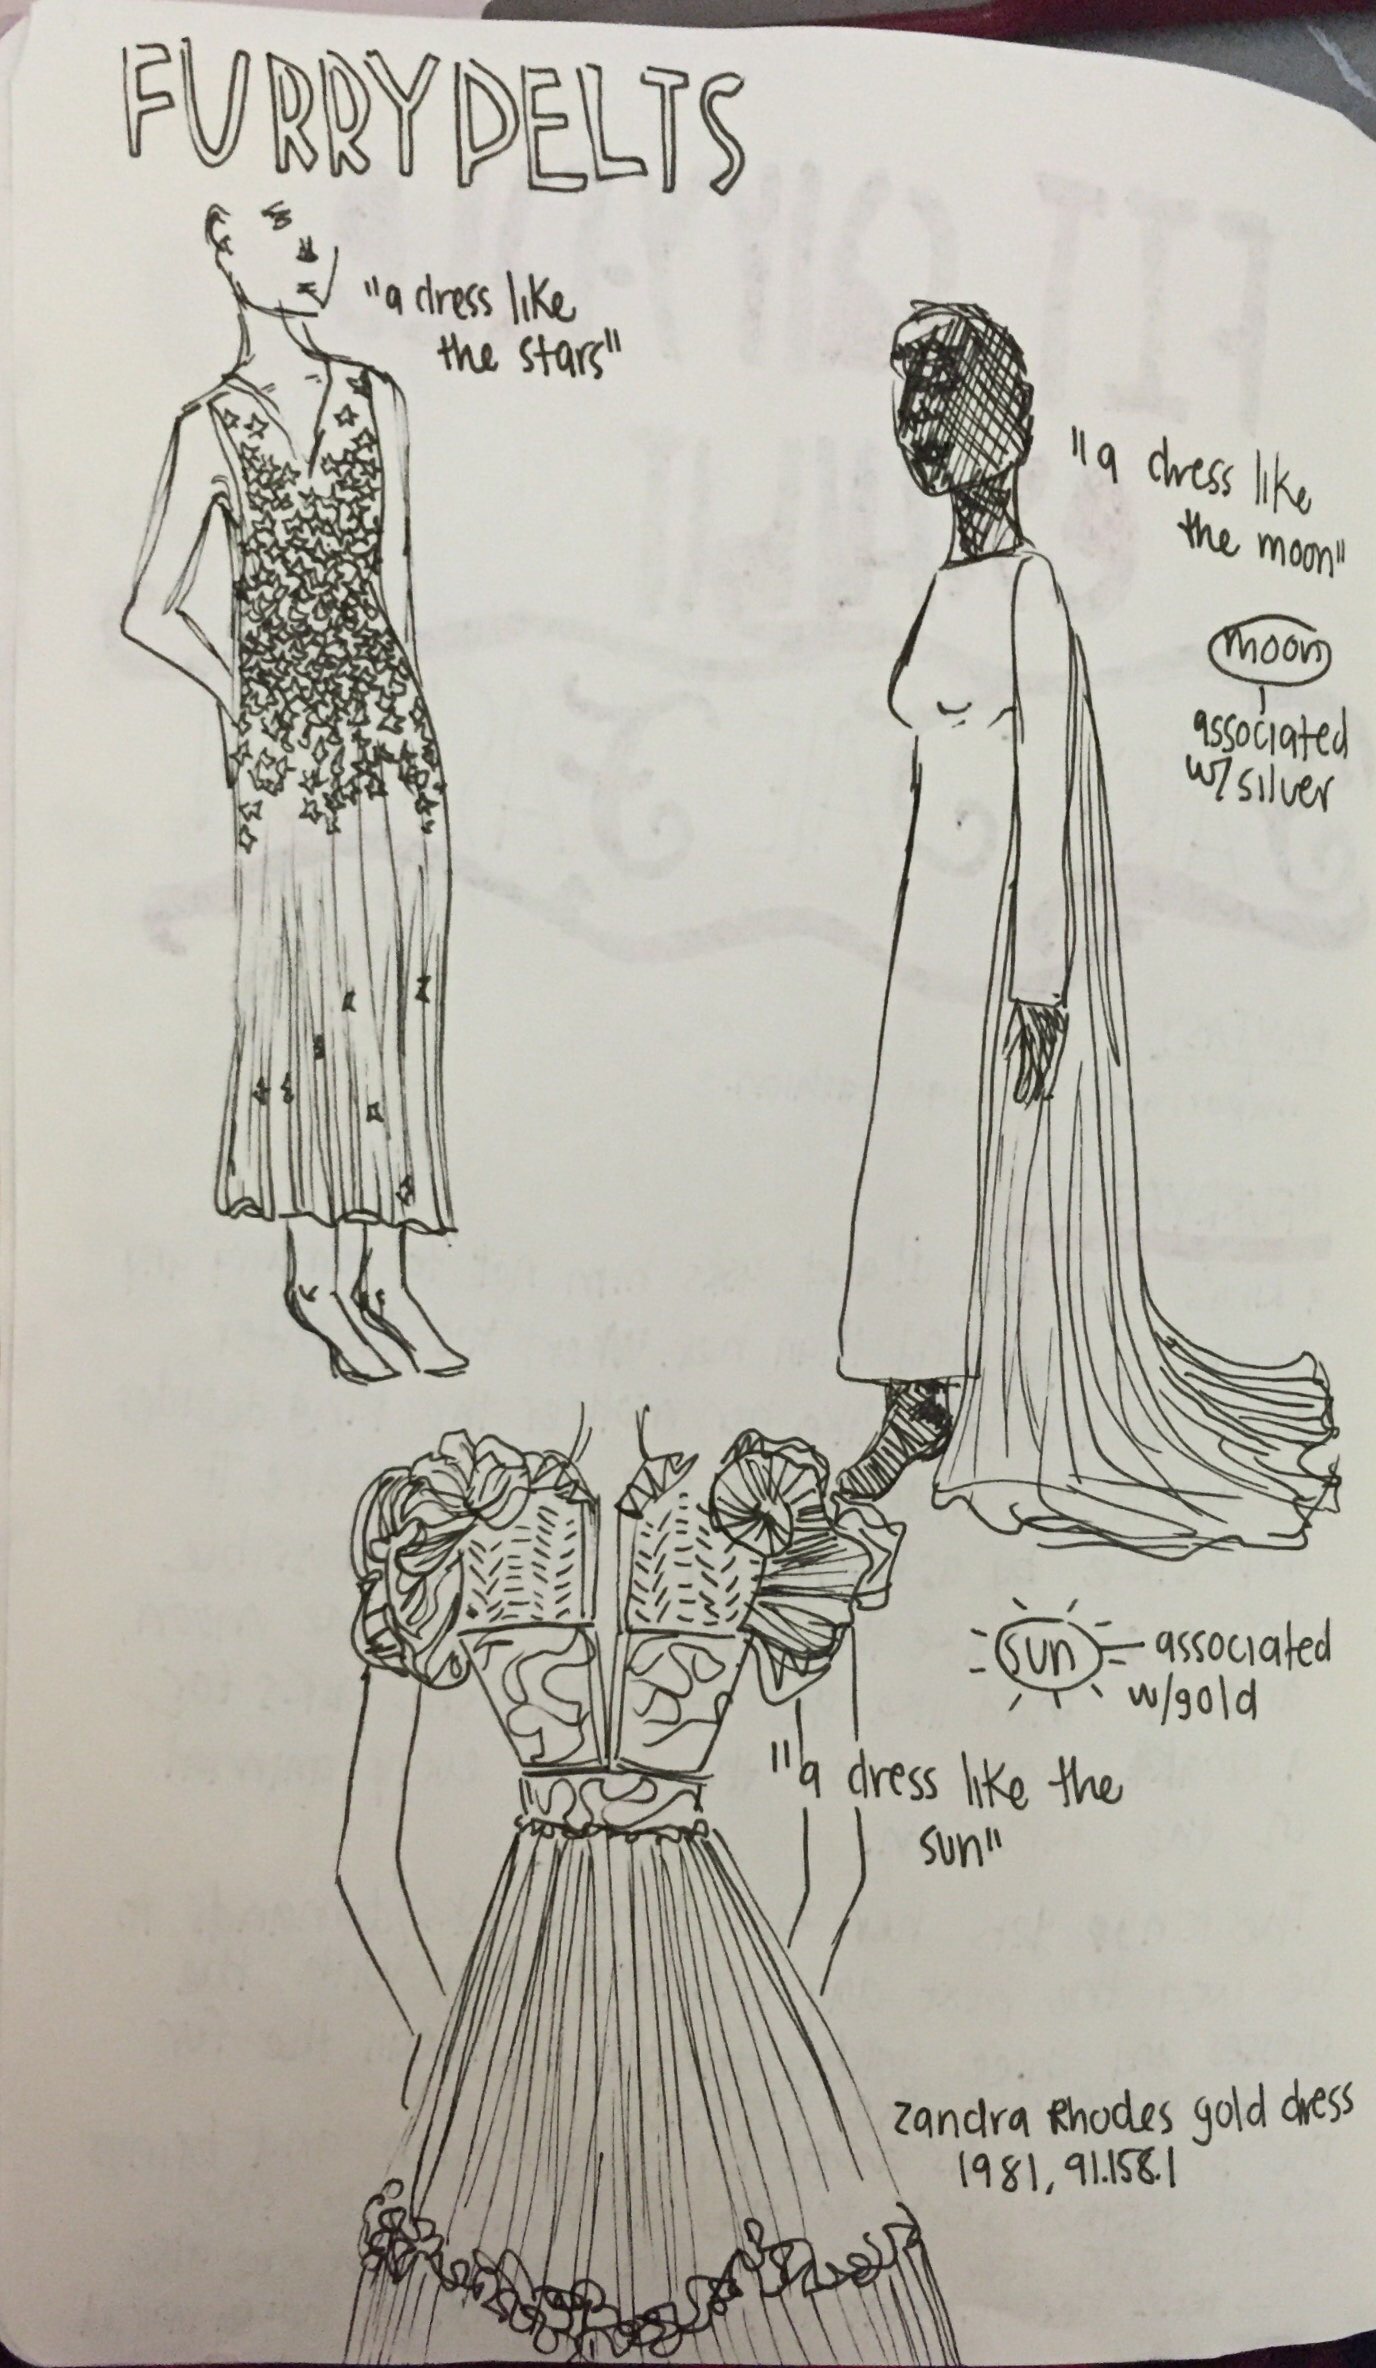 FURRYPELTS
"a dress like
the stars"
"a dress like
the moon"
moon
associated
w/silver
sun
associated
w/gold
"a dress like the
sun"
Zandra Rhodes gold dress
1981, 91.158.1